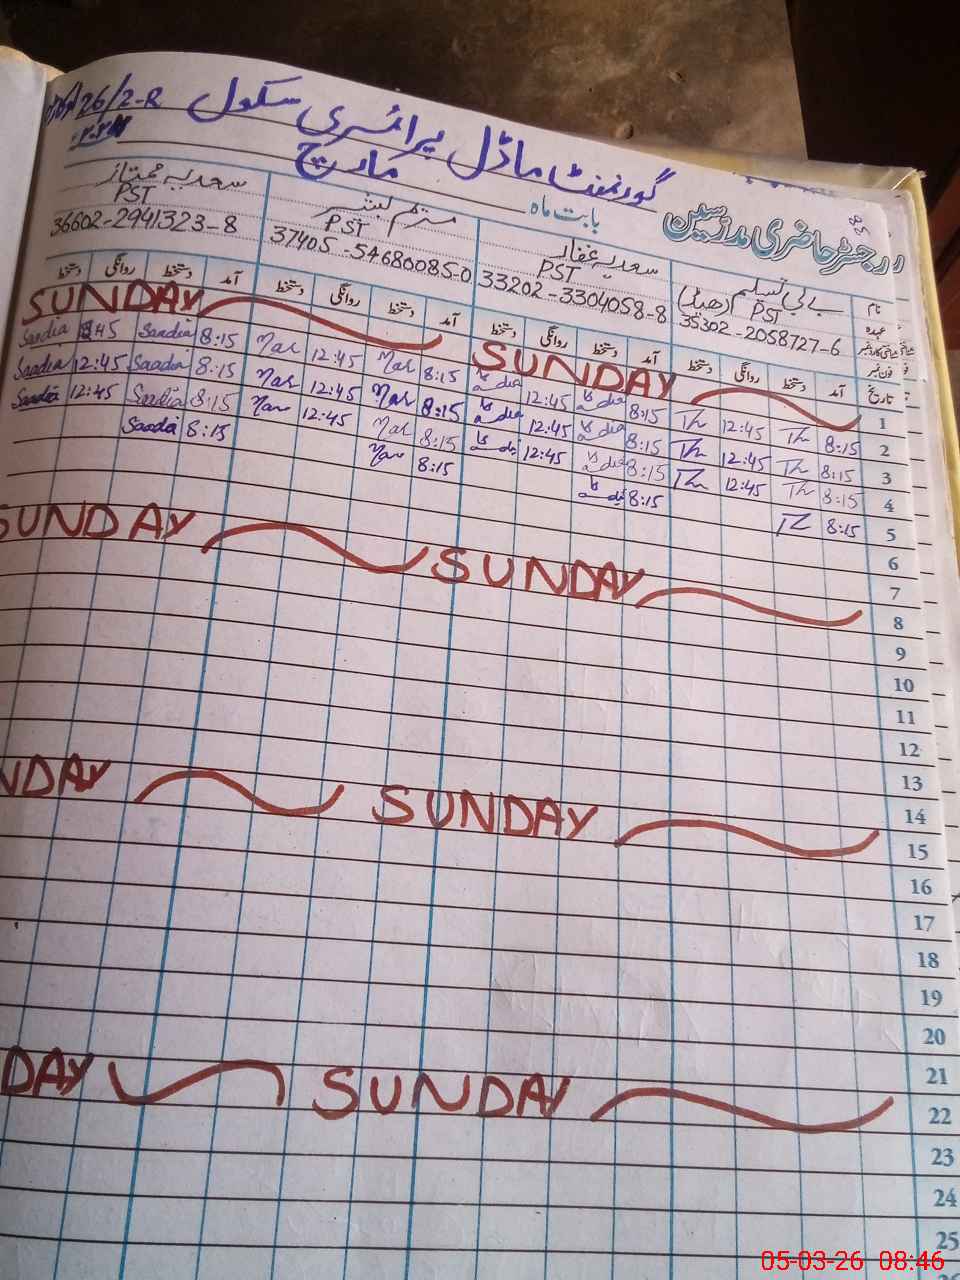 گورنمنٹ ماڈل پرائمری سکول 26/2-R
رجسٹر حاضری مدرسین بابت ماہ مارچ
نام بی بی تسلیم (ہیڈ) سعدیہ غفار سعدیہ ممتاز
عہدہ PST PST PST PST
35302-2058727-6 33202-3304058-8 37405-54680085-0 36602-2941323-8
تاریخ آمد دستخط روانگی دستخط آمد دستخط روانگی دستخط آمد دستخط روانگی دستخط آمد دستخط روانگی دستخط
1 SUNDAY SUNDAY
2 8:15 Th 12:45 Th 8:15 12:45 8:15 12:45 8:15 Saadia Saadia
3 8:15 Th 12:45 Th 8:15 12:45 8:15 12:45 8:15 Saadia 12:45 Saadia
4 8:15 Th 12:45 Th 8:15 12:45 8:15 12:45 8:15 Saadia 12:45 Saadia
5 8:15 8:15 8:15 8:15 Saadia
6
7
8 SUNDAY SUNDAY
9
10
11
12
13
14
15 SUNDAY NDAY
16
17
18
19
20
21
22 SUNDAY DAY
23
24
25
05-03-26 08:46